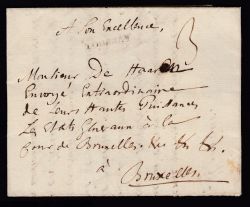 A Son Excellence,
3
Monsieur De Haaren
Envoyé Extraordinaire
de Leurs Hautes Puissances
Les Etats Generaux à la
Cour de Bruxelles &c &c &c.
à
Bruxelles